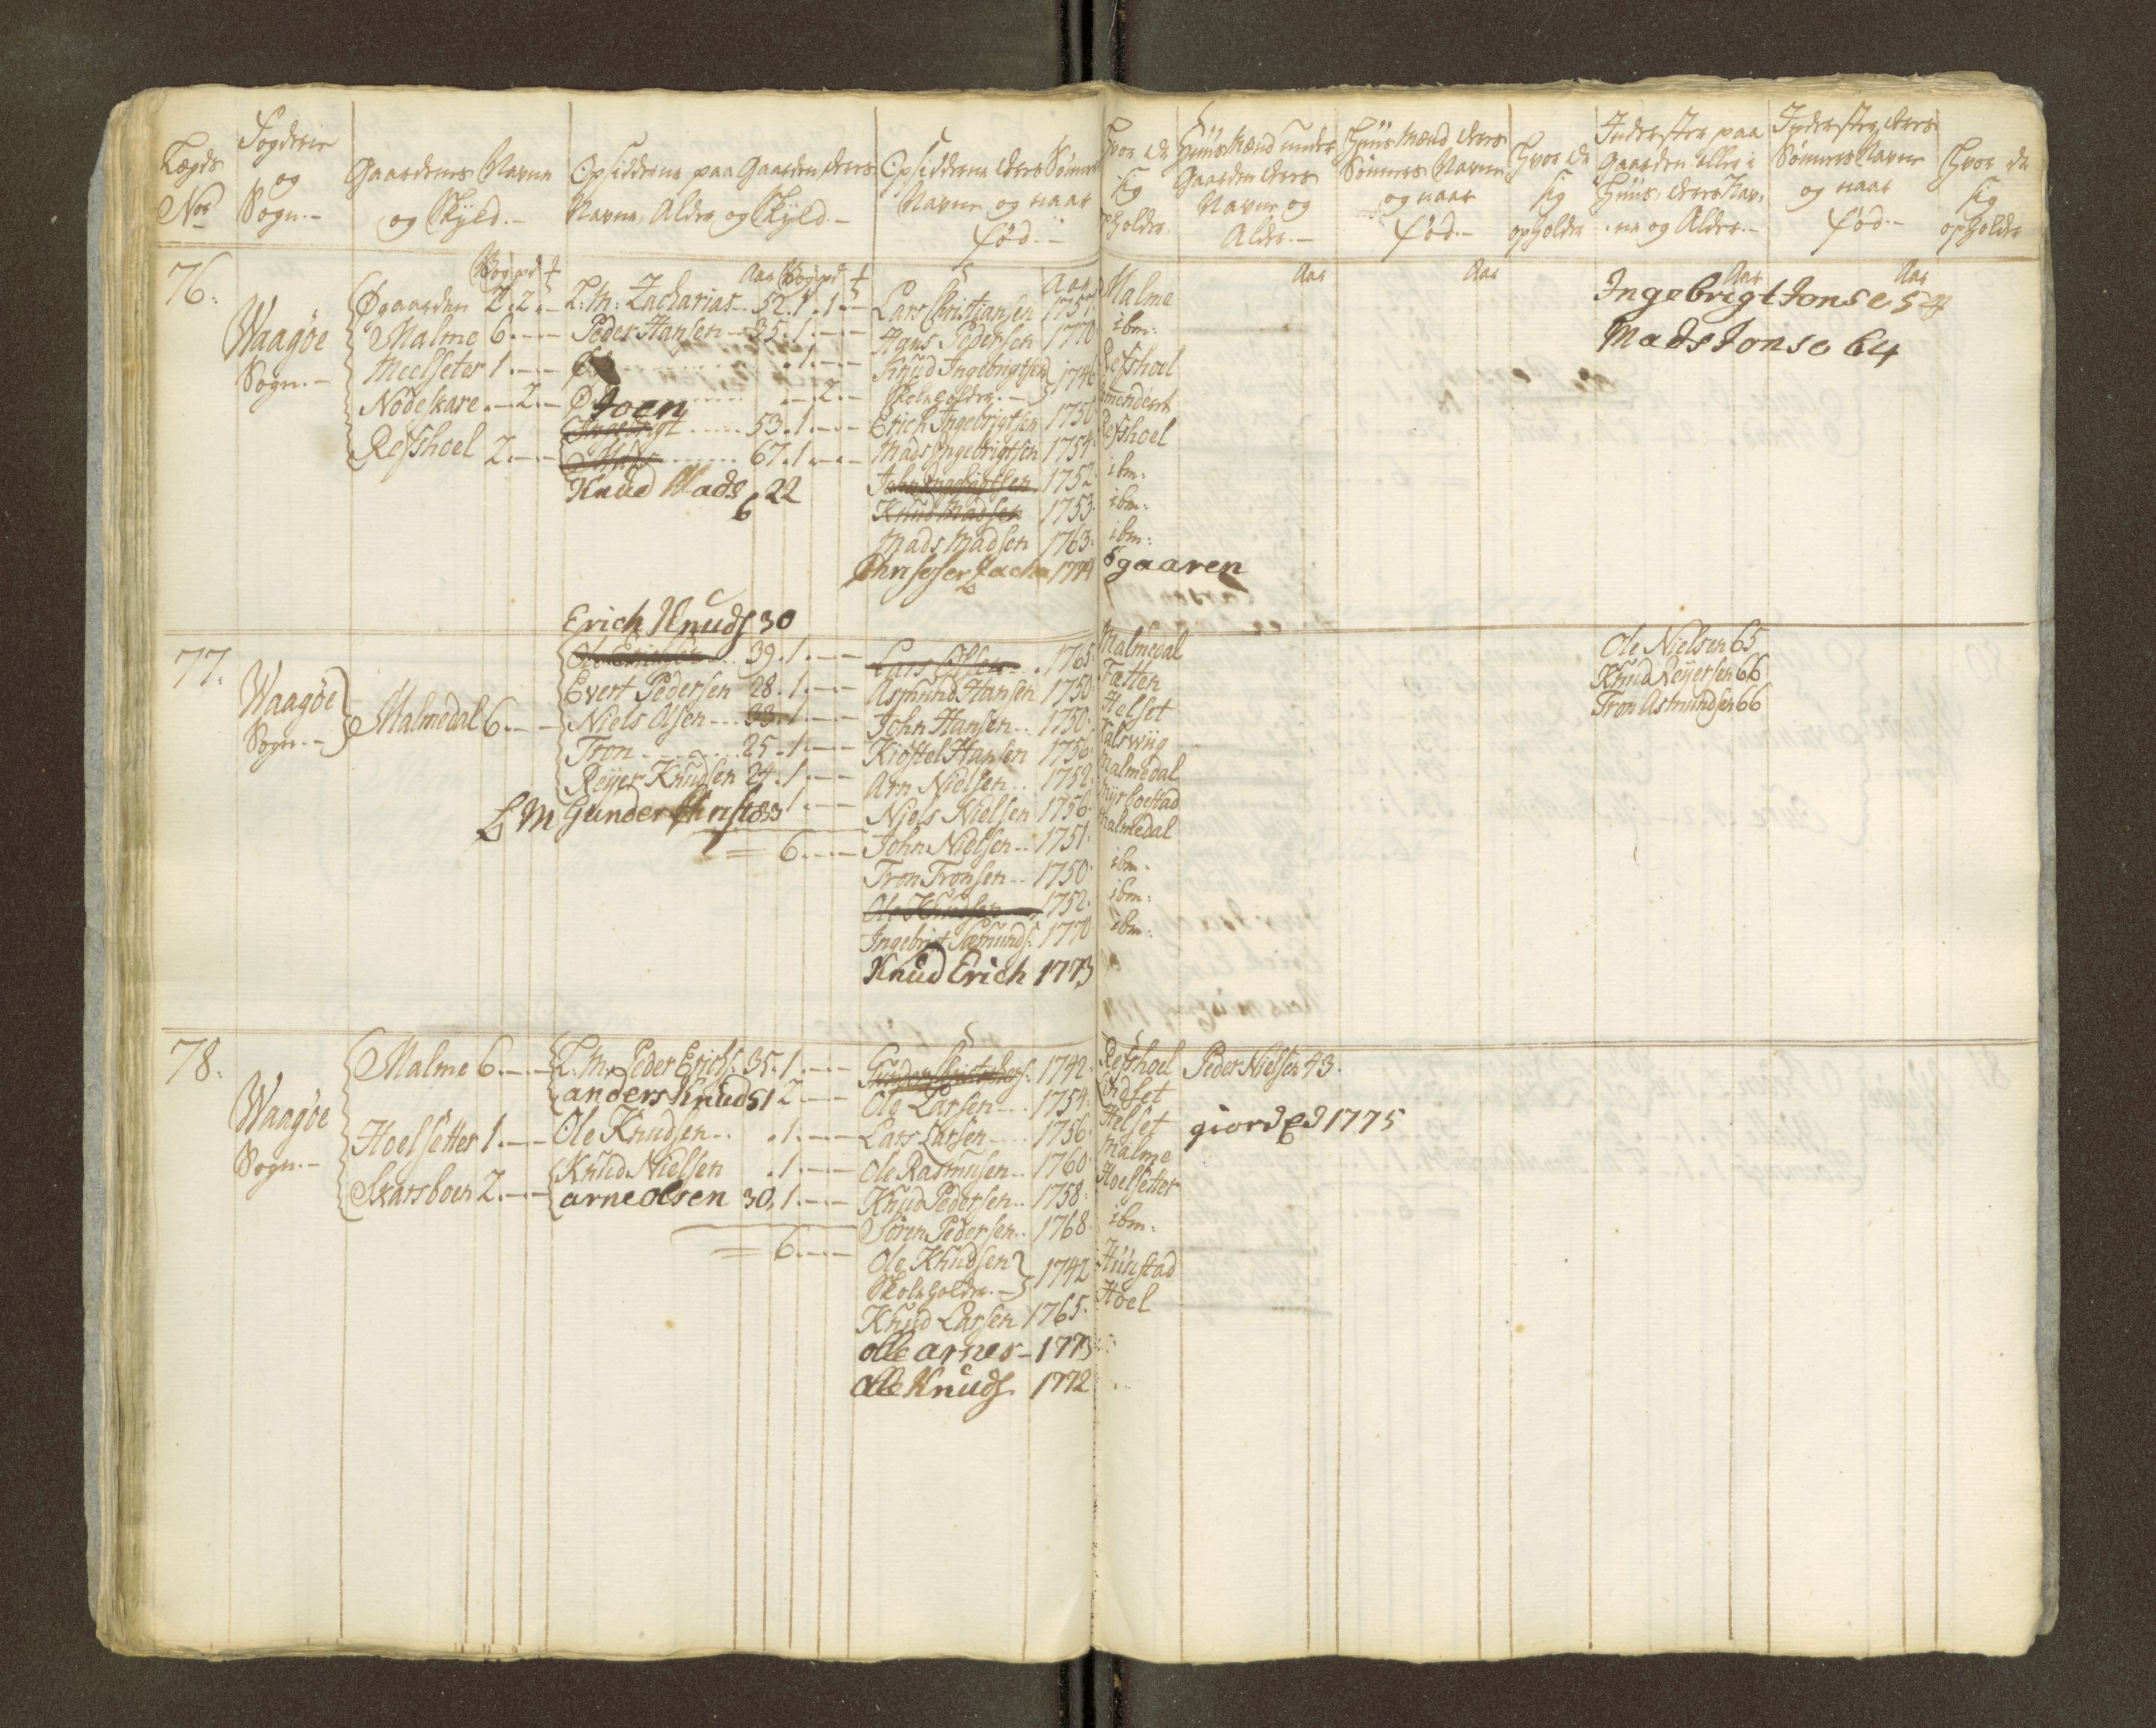 Lægds
No
Fogderie
og
Sogn.-
Gaardenes Navne
og Skyld.-
Opsidderne paa Gaarden deres
Navne, Alder og Skyld.-
Opsidderne deres Sønners
Navne og naar
fød.-
Hvor de
sig
opholder
Huusmænd under
Gaarden deres
Navne og
Alder.-
Huusmænd deres
Sønners Navne
og naar
fød.-
Hvor de
sig
opholder
Inderster paa
Gaarden eller i
Huus, deres Nav,
ne og Alder.-
Inderster deres
Sønners Navne
og naar
fød.-
Hvor de
sig
opholder
76.
Waagøe
Sogn.-
Øgaarden 2.2.-
Malme 6.--
Meelseter 1.--
Nödekare .-2.-
Refshoel 2.--
L:M: Zacharias.. 52.1.1.-
Peder Hansen 35.1.--
.1.--
.-2.-
Joen
Ingebrigt ..... 53.1.--
67.1.--
Knud Mads 22
6
Aar
Lars Christiansen 1757
Hans Pedersen 1770
Knud Ingebrigtsen
Skoleholder.- 1746
Erich Ingebrigtsen 1750
Mads Ingebrigtsen 1754.
John Ingebrigtsen 1752.
Knud Madsen 1753.
Mads Madsen 1763.
Zacha 1774
Malme
ibm:
Refshoel
Refshoel
ibm:
ibm:
ibm:
øgaaren
Aar
Aar
Aar
Aar
Ingebrigt Jonse 54
Mads Jonse 64
77.
Waagøe
Sogn.-
Malmedal 6.--
Erich Knuds 30
Ole Erichsen 39.1.--
Evert Pedersen 28.1.--
Niels Olsen 33.1.--
Tron 25.1.--
Reyer Knudsen 24.1.--
L M Gunder Christo 33 1.--
= 6.--
Lars Olsen 1765.
Asmund Hansen 1750.
John Hansen.. 1750.
Kiøstel Hansen 1756.
Arn Nielsen.. 1752.
Niels Nielsen 1756.
John Nielsen.. 1751.
Tron Tronsen.. 1750.
Ole Knudsen 1752.
Ingebrigt Asmunds: 1770.
Knud Erich 1773
Malmedal
Tætten
Helset
Malmedal
Myrboestad
Malmedal
ibm.
ibm:
ibm:
Ole Nielsen 65
Knud Reyersen 66
Tron Asmundsen 66
78.
Waagøe
Sogn.-
Malme 6.--
Hoelsetter 1.--
Skarsboen 2.--
L:M: Peder Erichs: 35.1.--
anders Knuds 51 2.--
Ole Knudsen.. .1.--
Knud Nielsen .1.--
arne olsen 30.1.--
= 6.--
Gunder Christophers: 1742.
Ole Larsen 1754.
Lars Larsen 1756.
Ole Rasmusen.. 1760.
Knud Pedersen.. 1758.
Søren Pedersen.. 1768.
Ole Knudsen
Skoleholder.- 1742
Knud Larsen 1765.
olle arnes - 1773
olle Knuds. 1772
Refshoel
Lindset
Helset
Malme
Hoelsetter
ibm:
Huustad
Hoel
Peder Nielsen 43.
giord Ed 1775